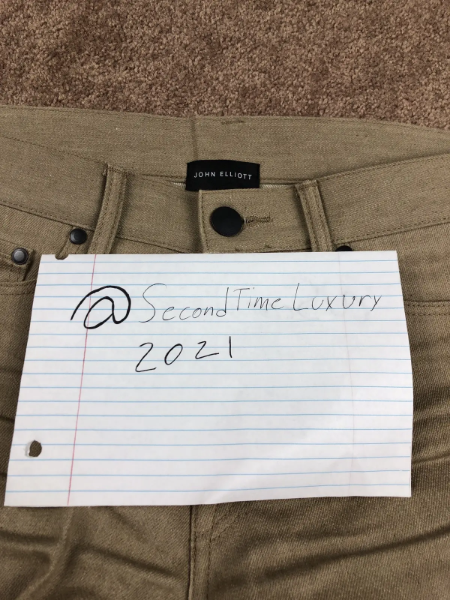 JOHN ELLIOTT
@SecondTimeLuxury
2021